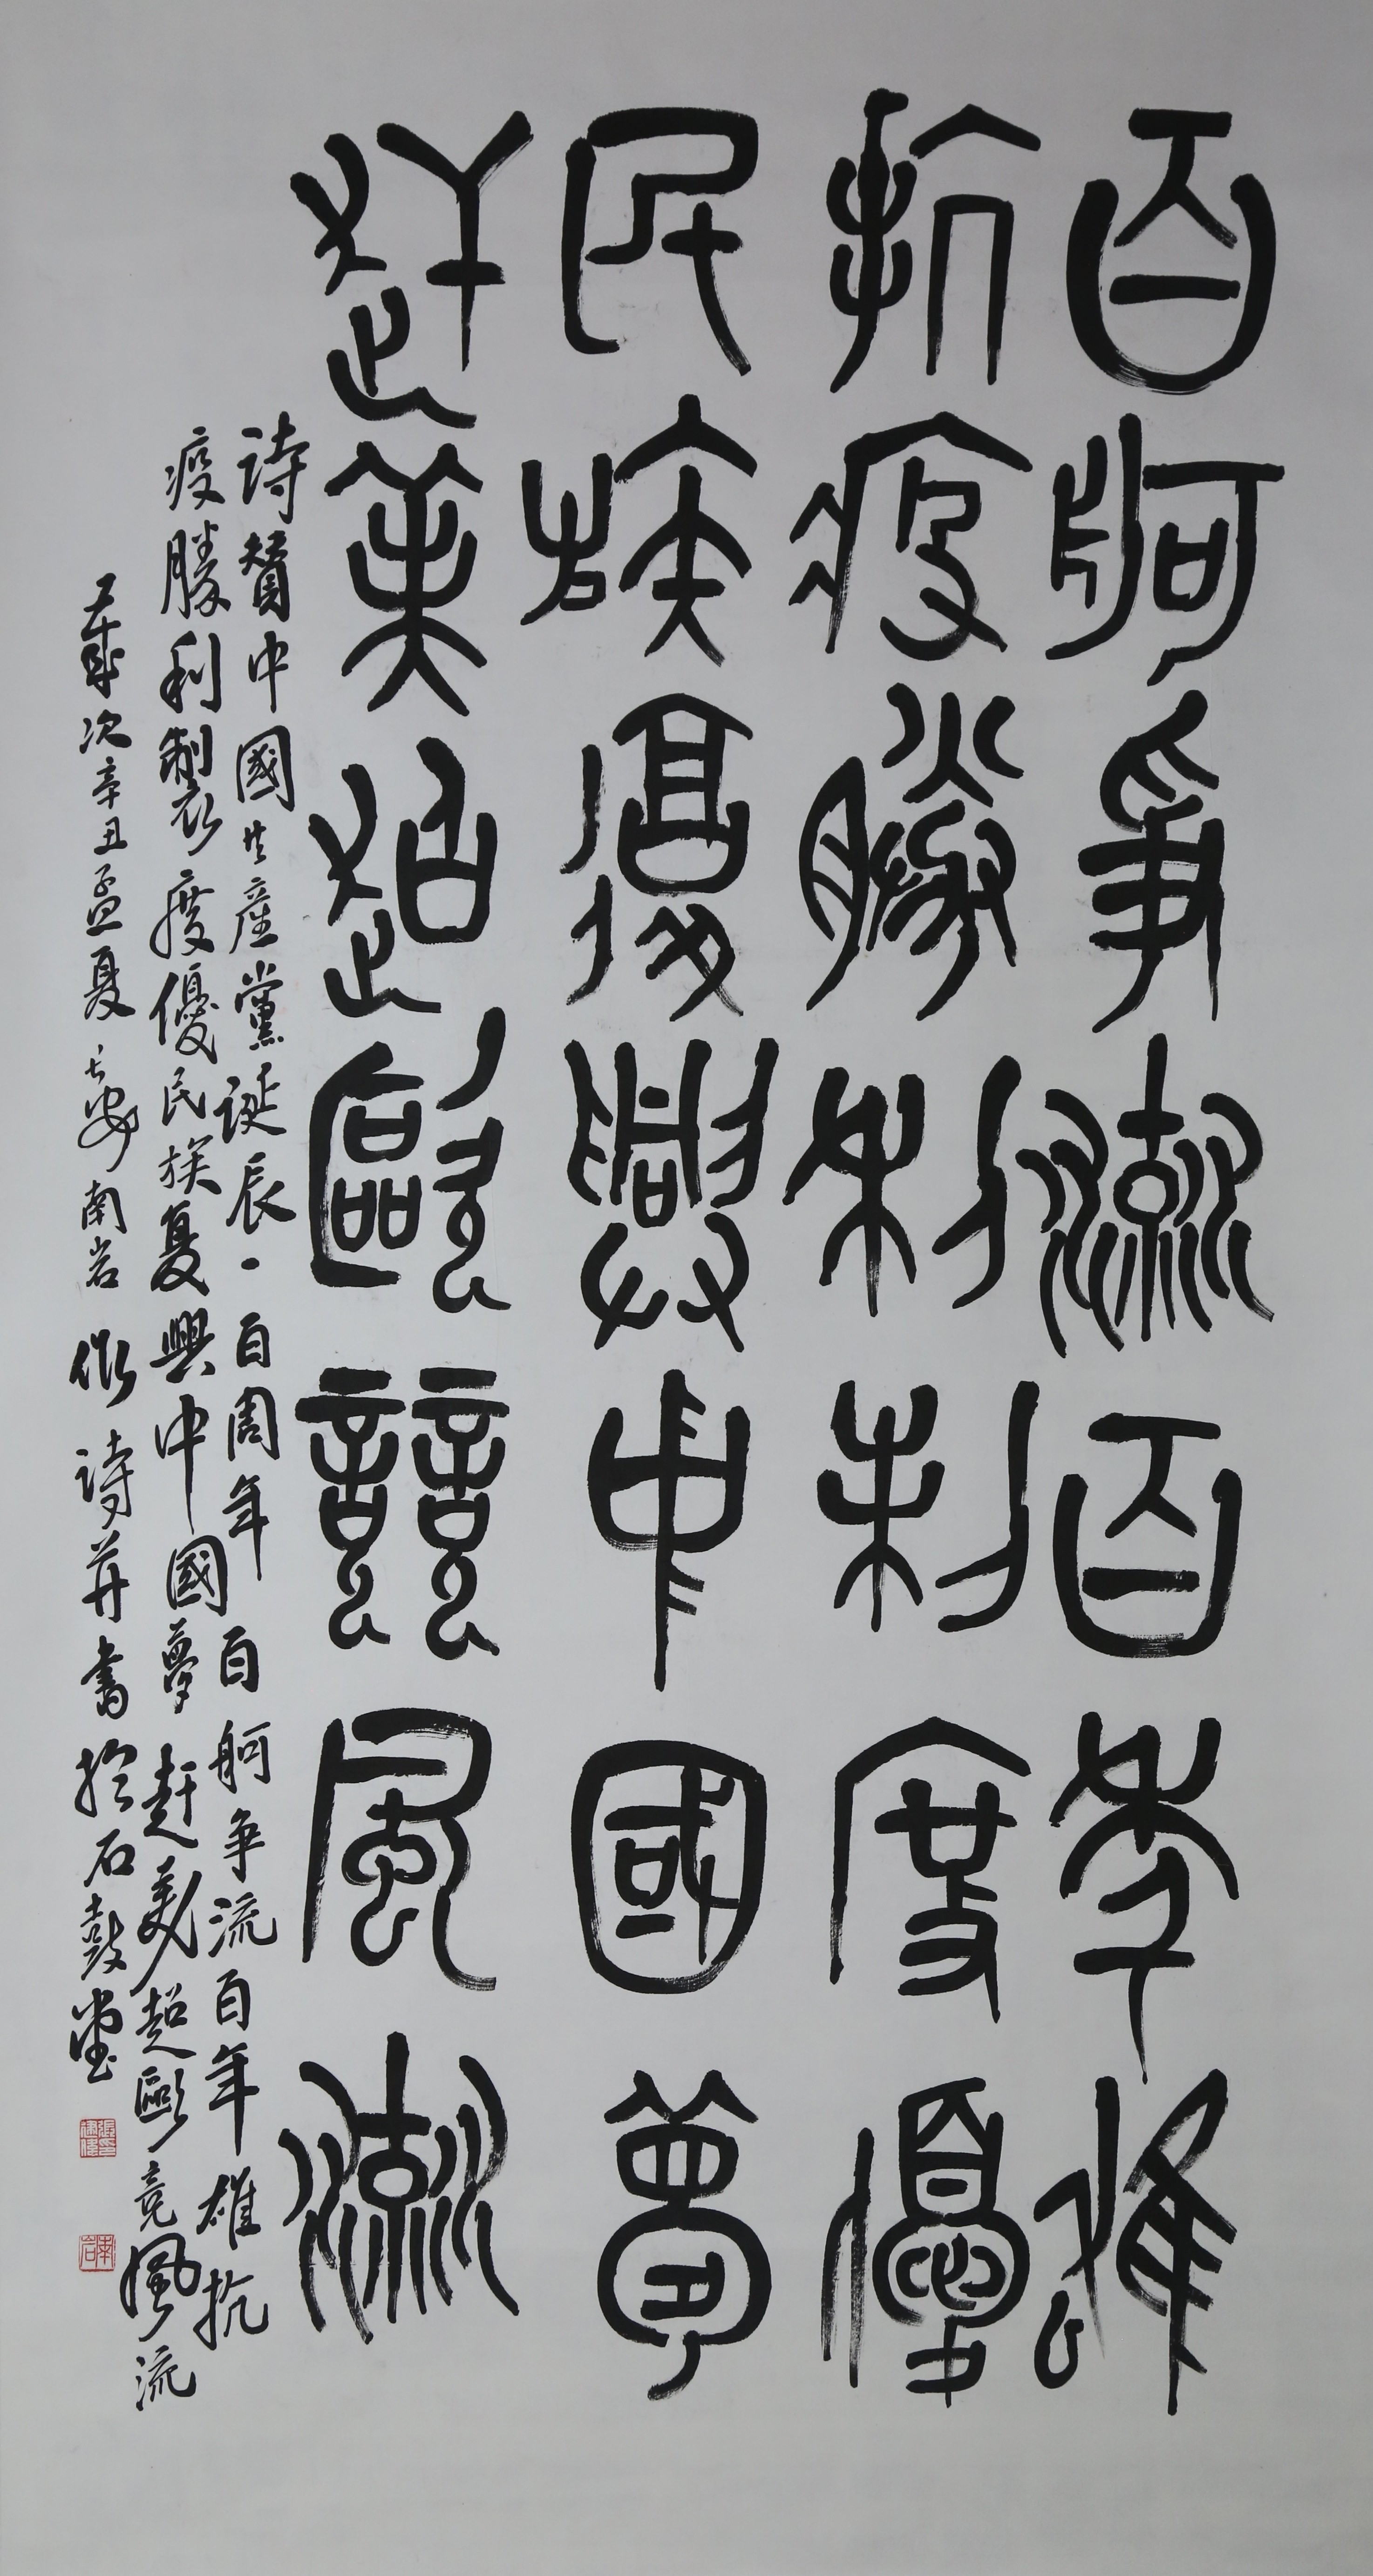 百舸爭流百年雄
抗疫勝利制度優
民族復興中國夢
趕美超歐競風流
詩贊中國共產黨誕辰一百周年百舸爭流百年雄抗
疫勝利製度優民族夏興中國夢趕美超歐竞風流
歲次辛丑孟夏長安南岩作詩并書於石鼓堂
南岩